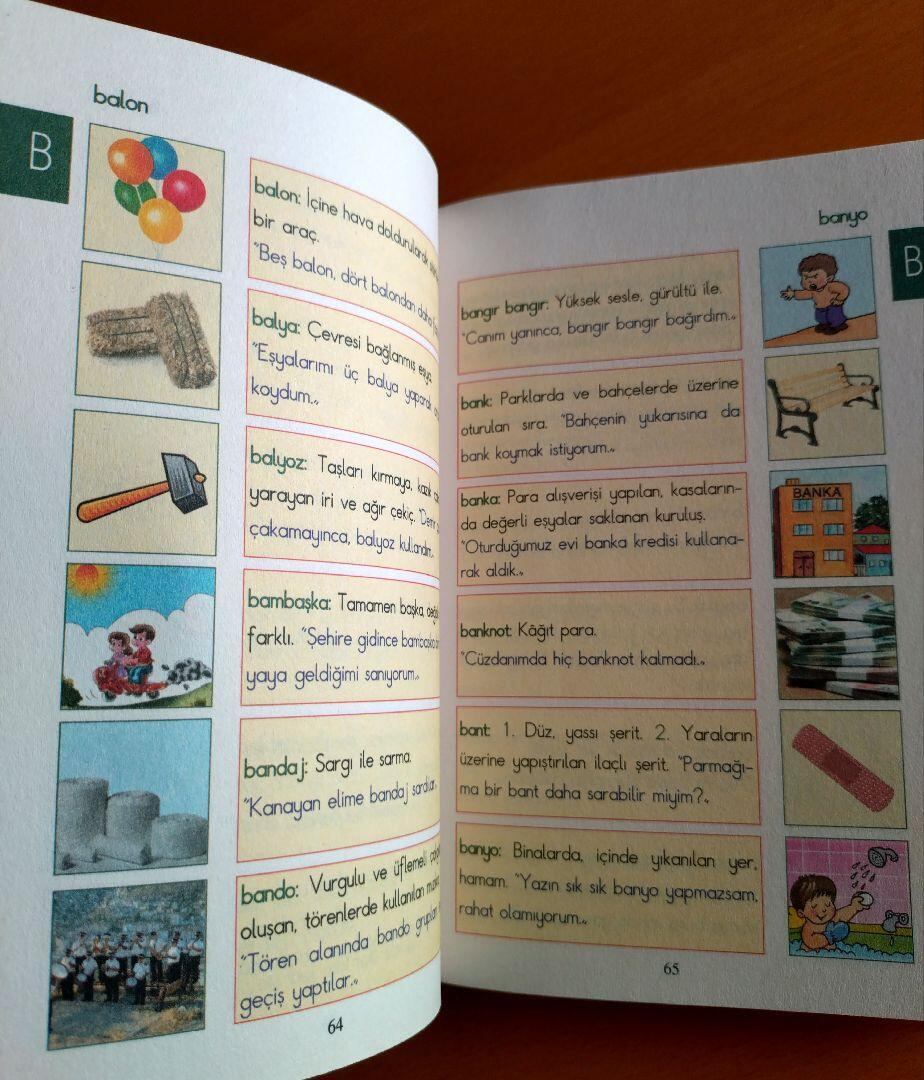 balon
B
balon: İçine hava doldurularak
bir araç.
"Beş balon, dört balondan daha
balya: Çevresi bağlanmış eşya
"Eşyalarımı üç balya yaparak
koydum.„
balyoz: Taşları kırmaya, kazık
yarayan iri ve ağır çekiç. "Demir
çakamayınca, balyoz kullandım.„
bambaşka: Tamamen başka,
farklı. "Şehire gidince bambaşka
yaya geldiğimi sanıyorum.„
bandaj: Sargı ile sarma.
"Kanayan elime bandaj sardılar.
bando: Vurgulu ve üflemeli
oluşan, törenlerde kullanılan
"Tören alanında bando grupları
geçiş yaptılar.„
64
banyo
B
bangır bangır: Yüksek sesle, gürültü ile.
"Canım yanınca, bangır bangır bağırdım.„
bank: Parklarda ve bahçelerde üzerine
oturulan sıra. "Bahçenin yukarısına da
bank koymak istiyorum.„
banka: Para alışverişi yapılan, kasaların-
da değerli eşyalar saklanan kuruluş.
"Oturduğumuz evi banka kredisi kullana-
rak aldık.„
BANKA
banknot: Kâğıt para.
"Cüzdanımda hiç banknot kalmadı.„
bant: 1. Düz, yassı şerit. 2. Yaraların
üzerine yapıştırılan ilaçlı şerit. "Parmağı-
ma bir bant daha sarabilir miyim?„
banyo: Binalarda, içinde yıkanılan yer,
hamam. "Yazın sık sık banyo yapmazsam,
rahat olamıyorum.„
65